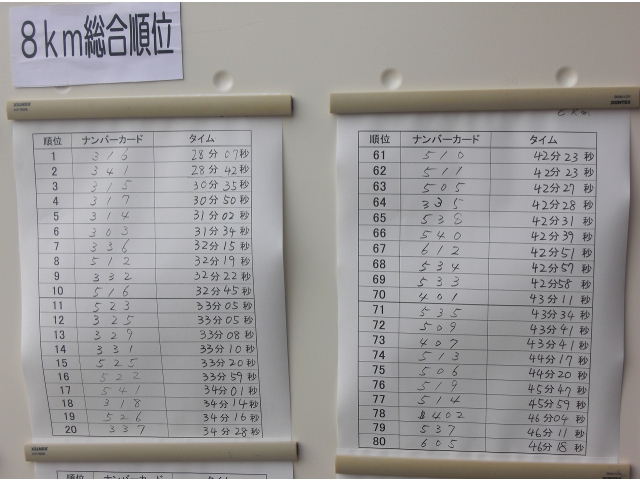 8km総合順位
順位 ナンバーカード タイム
1 316 28分07秒
2 341 28分42秒
3 315 30分35秒
4 317 30分50秒
5 314 31分02秒
6 303 31分34秒
7 336 32分15秒
8 512 32分19秒
9 332 32分22秒
10 516 32分45秒
11 523 33分05秒
12 325 33分05秒
13 329 33分08秒
14 331 33分10秒
15 525 33分20秒
16 522 33分59秒
17 541 34分01秒
18 318 34分14秒
19 526 34分16秒
20 337 34分28秒
順位 ナンバーカード タイム
61 510 42分23秒
62 511 42分23秒
63 505 42分27秒
64 335 42分28秒
65 538 42分31秒
66 540 42分39秒
67 612 42分51秒
68 534 42分57秒
69 533 42分58秒
70 401 43分11秒
71 535 43分34秒
72 509 43分41秒
73 407 43分41秒
74 513 44分17秒
75 506 44分20秒
76 519 45分47秒
77 514 45分59秒
78 402 46分04秒
79 537 46分11秒
80 605 46分18秒
順位 ナンバーカード タイム